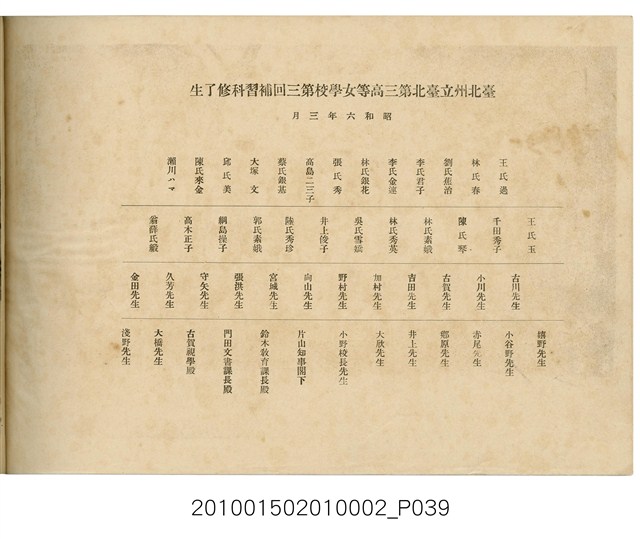 臺北州立臺北第三高等女學校第三回補習科修了生
昭和六年三月
王氏過
林氏春
劉氏蕉治
李氏君子
李氏金蓮
林氏銀花
張氏秀
高島二三子
蔡氏銀基
大塚文
邱氏美
陳氏來金
瀨川ハマ
王氏玉
千田秀子
陳氏琴
林氏素娥
林氏秀英
吳氏雪嬌
井上俊子
陸氏秀珍
郭氏素娥
綱島操子
高木正子
翁薛氏緞
古川先生
小川先生
古賀先生
吉田先生
加村先生
野村先生
向山先生
宮城先生
張洪先生
守矢先生
久芳先生
金田先生
嬉野先生
小谷野先生
赤尾先生
鄉原先生
井上先生
大欣先生
小野校長先生
片山知事閣下
鈴木敎育課長殿
門田文書課長殿
古賀視學殿
大橋先生
淺野先生
201001502010002_P039